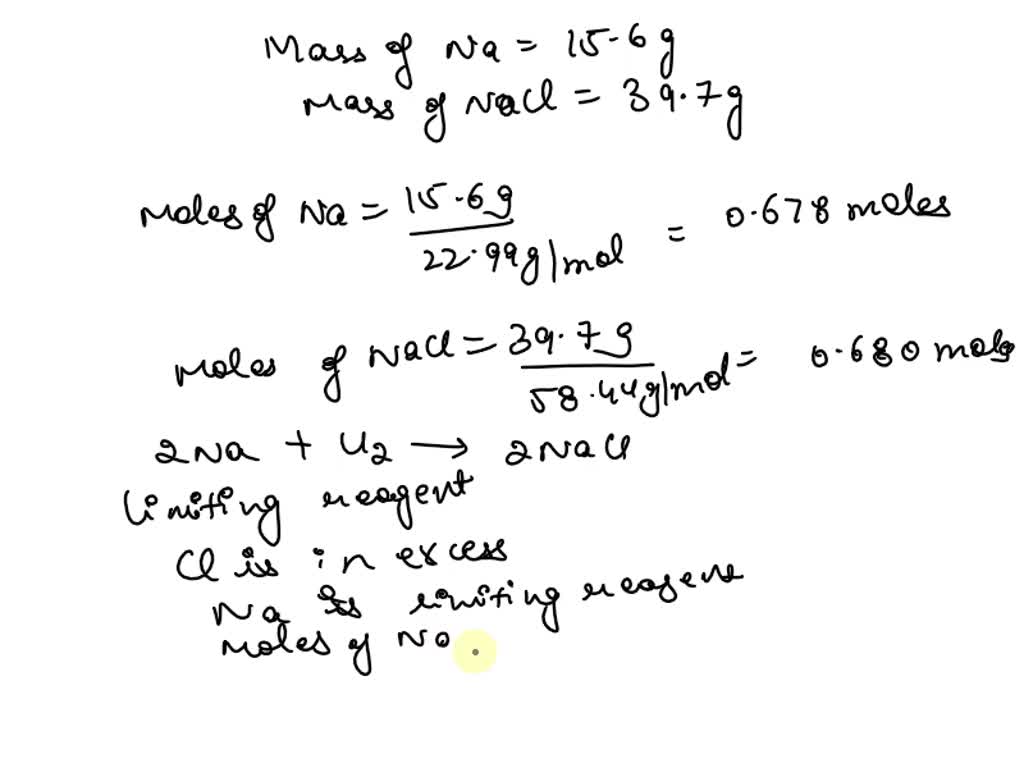 Mass of Na = 15.6g
Mass of NaCl = 39.7g
Moles of Na = 15.6g / 22.99g/mol = 0.678 moles
moles of NaCl = 39.7g / 58.44g/mol = 0.680 moles
2Na + Cl2 → 2NaCl
limiting reagent
Cl is in excess
Na is limiting reagent
moles of Na